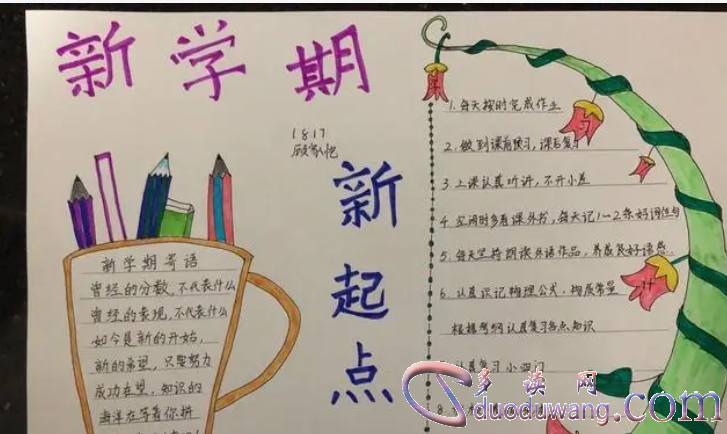 新学期
1817
新起点
新学期寄语
曾经的分数,不代表什么
曾经的表现,不代表什么
如今是新的开始,
新的希望,只要努力
成功在望,知识的
海洋在等着你拼
1. 每天按时完成作业
2. 做到课前预习,课后复习
3. 上课认真听讲,不开小差
4. 空闲时多看课外书,每天记1~2条好词佳句
5. 每天坚持朗读外语作品,养成良好语感
6. 认真识记物理公式,物质常量
根据考纲认真复习各点知识
认真复习小四门
8.
学
习
计
多读网
duoduwang.com